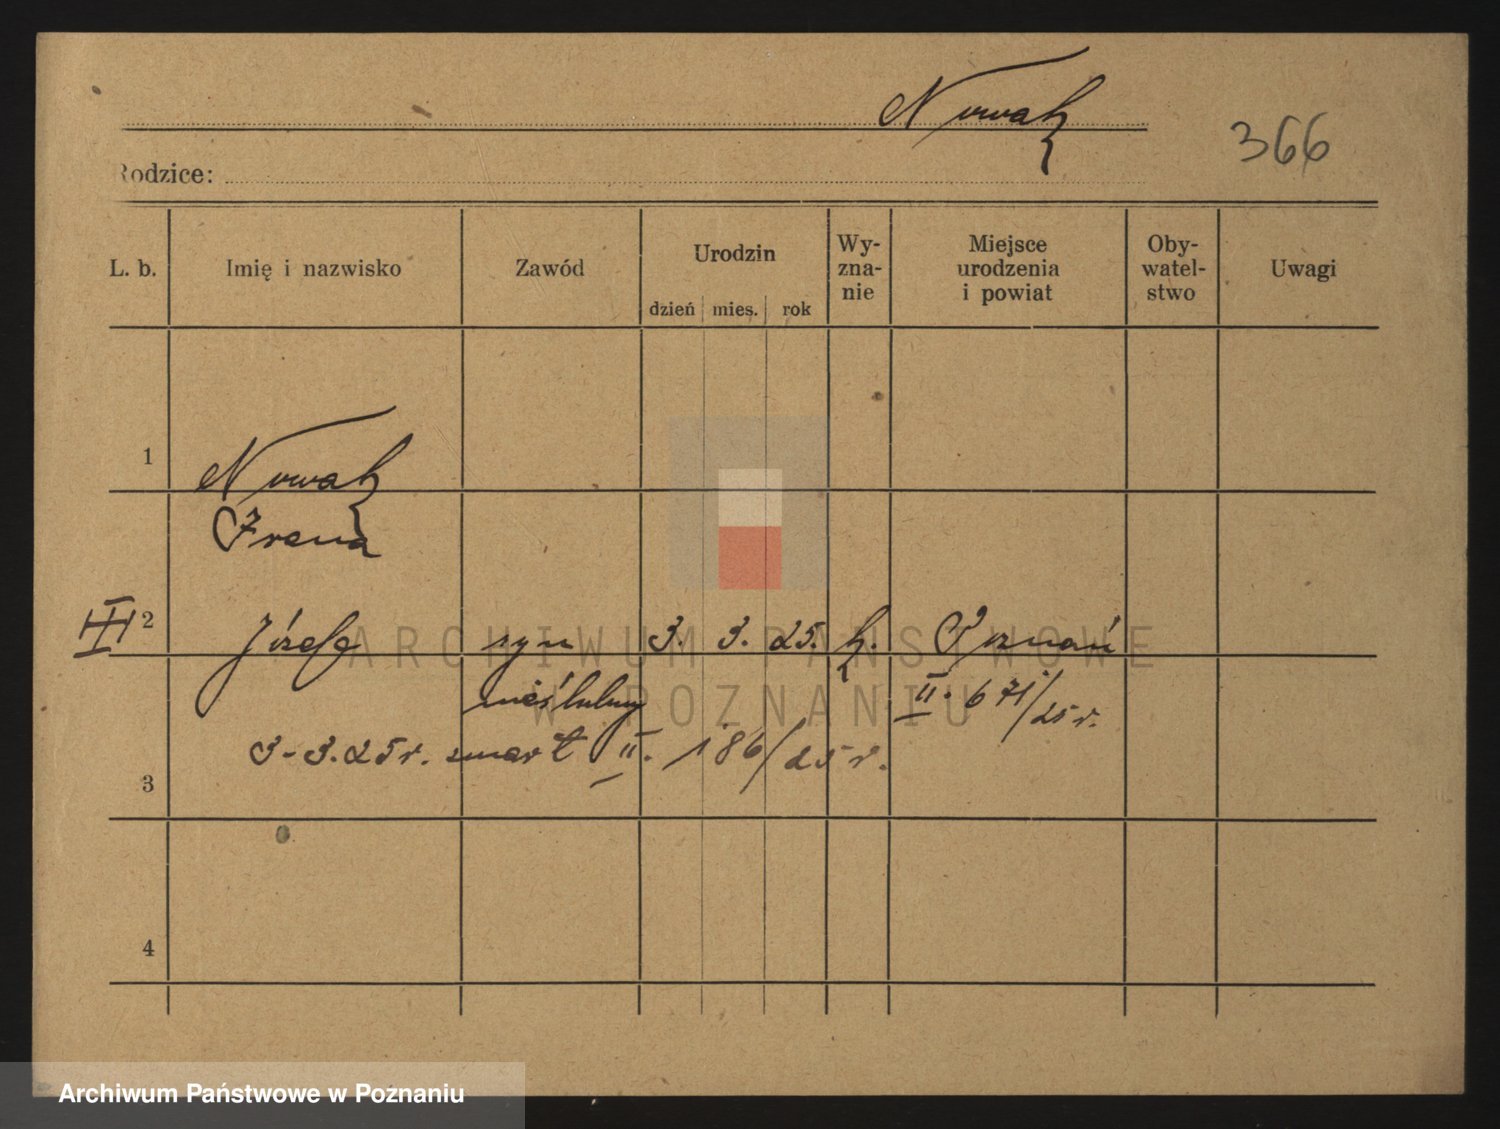 Nowak
366
Rodzice:
L. b. Imię i nazwisko Zawód Urodzin dzień mies. rok Wy-zna-nie Miejsce urodzenia i powiat Oby-watel-stwo Uwagi
1 Nowak
Irena
III 2 Józef syn 3. 3. 25. k. Poznań
nieślubny II. 671/25 r.
3-3.25 r. zmarł II. 186/25 r.
3
4
ARCHIWUM PAŃSTWOWE
W POZNANIU
Archiwum Państwowe w Poznaniu